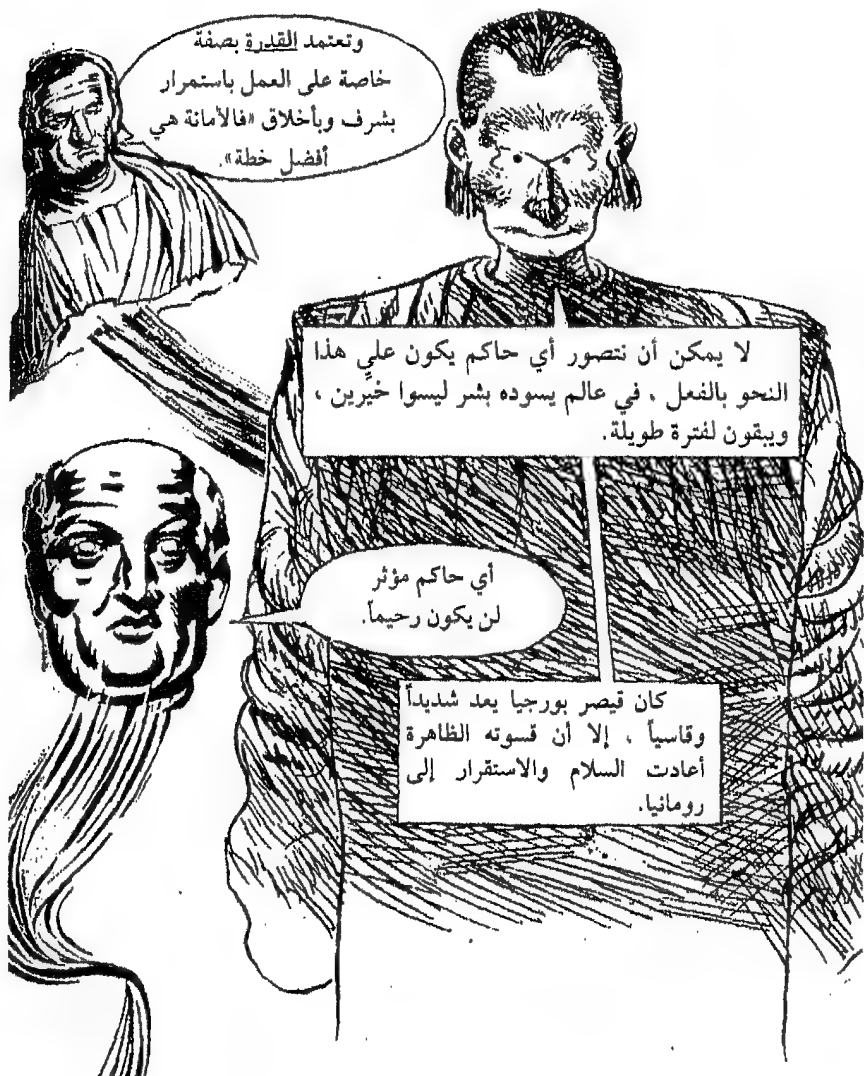 وتعتمد القدرة بصفة
خاصة على العمل باستمرار
بشرف وبأخلاق «فالأمانة هي
أفضل خطة».
لا يمكن أن نتصور أي حاكم يكون على هذا
النحو بالفعل ، في عالم يسوده بشر ليسوا خيرين ،
ويبقون لفترة طويلة.
أي حاكم مؤثر
لن يكون رحيماً.
كان قيصر بورجيا يعد شديداً
وقاسياً ، إلا أن قسوته الظاهرة
أعادت السلام والاستقرار إلى
رومانيا.